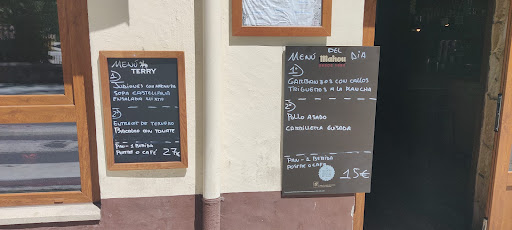 MENÚ
TERRY
1º
JUDIONES CON
SOPA CASTELLANA
ENSALADA MIXTA
2º
ENTRECOT DE TERNERA
PESCADO CON TOMATE
PAN - 1 BEBIDA
POSTRE O CAFÉ 27€
MENÚ DEL DÍA
Mahou
1º
GARBANZOS CON CALLOS
TRIGUEROS A LA PLANCHA
2º
POLLO ASADO
CARRILLERA GUISADA
PAN - 1 BEBIDA
POSTRE O CAFÉ 15€